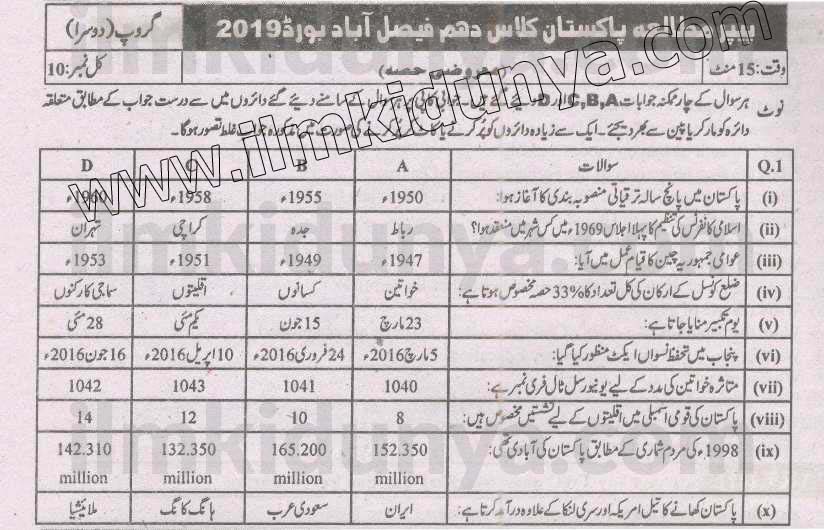 پیپر مطالعہ پاکستان کلاس دہم فیصل آباد بورڈ 2019 گروپ (دوسرا)
وقت: 15 منٹ (معروضی حصہ) کل نمبر: 10
نوٹ ہر سوال کے چار ممکنہ جوابات C,B,A اور D دیئے گئے ہیں۔ جوابی کاپی پر ہر سوال کے سامنے دیئے گئے دائروں میں سے درست جواب کے مطابق متعلقہ
دائرہ کو مارکر یا پین سے بھر دیجئے۔ ایک سے زیادہ دائروں کو پُر کرنے یا کاٹ کر پُر کرنے کی صورت میں مذکورہ جواب غلط تصور ہوگا۔
Q.1 سوالات A B C D
(i) پاکستان میں پانچ سالہ ترقیاتی منصوبہ بندی کا آغاز ہوا: 1950ء 1955ء 1958ء 1960ء
(ii) اسلامی کانفرنس کی تنظیم کا پہلا اجلاس 1969ء میں کس شہر میں منعقد ہوا؟ رباط جدہ کراچی تہران
(iii) عوامی جمہوریہ چین کا قیام عمل میں آیا: 1947ء 1949ء 1951ء 1953ء
(iv) ضلع کونسل کے ارکان کی کل تعداد کا 33% حصہ مخصوص ہوتا ہے: خواتین کسانوں اقلیتوں سماجی کارکنوں
(v) یوم تکبیر منایا جاتا ہے: 23 مارچ 15 جون یکم مئی 28 مئی
(vi) پنجاب میں تحفظ نسواں ایکٹ منظور کیا گیا: 5 مارچ 2016ء 24 فروری 2016ء 10 اپریل 2016ء 16 جون 2016ء
(vii) متاثرہ خواتین کی مدد کے لیے یونیورسل ٹال فری نمبر ہے: 1040 1041 1043 1042
(viii) پاکستان کی قومی اسمبلی میں اقلیتوں کے لیے نشستیں مخصوص ہیں: 8 10 12 14
(ix) 1998ء کی مردم شماری کے مطابق پاکستان کی آبادی تھی: 152.350 million 165.200 million 132.350 million 142.310 million
(x) پاکستان کھانے کا تیل امریکہ اور سری لنکا کے علاوہ درآمد کرتا ہے: ایران سعودی عرب ہانگ کانگ ملائیشیا
www.ilmkidunya.com
ilmkidunya.com